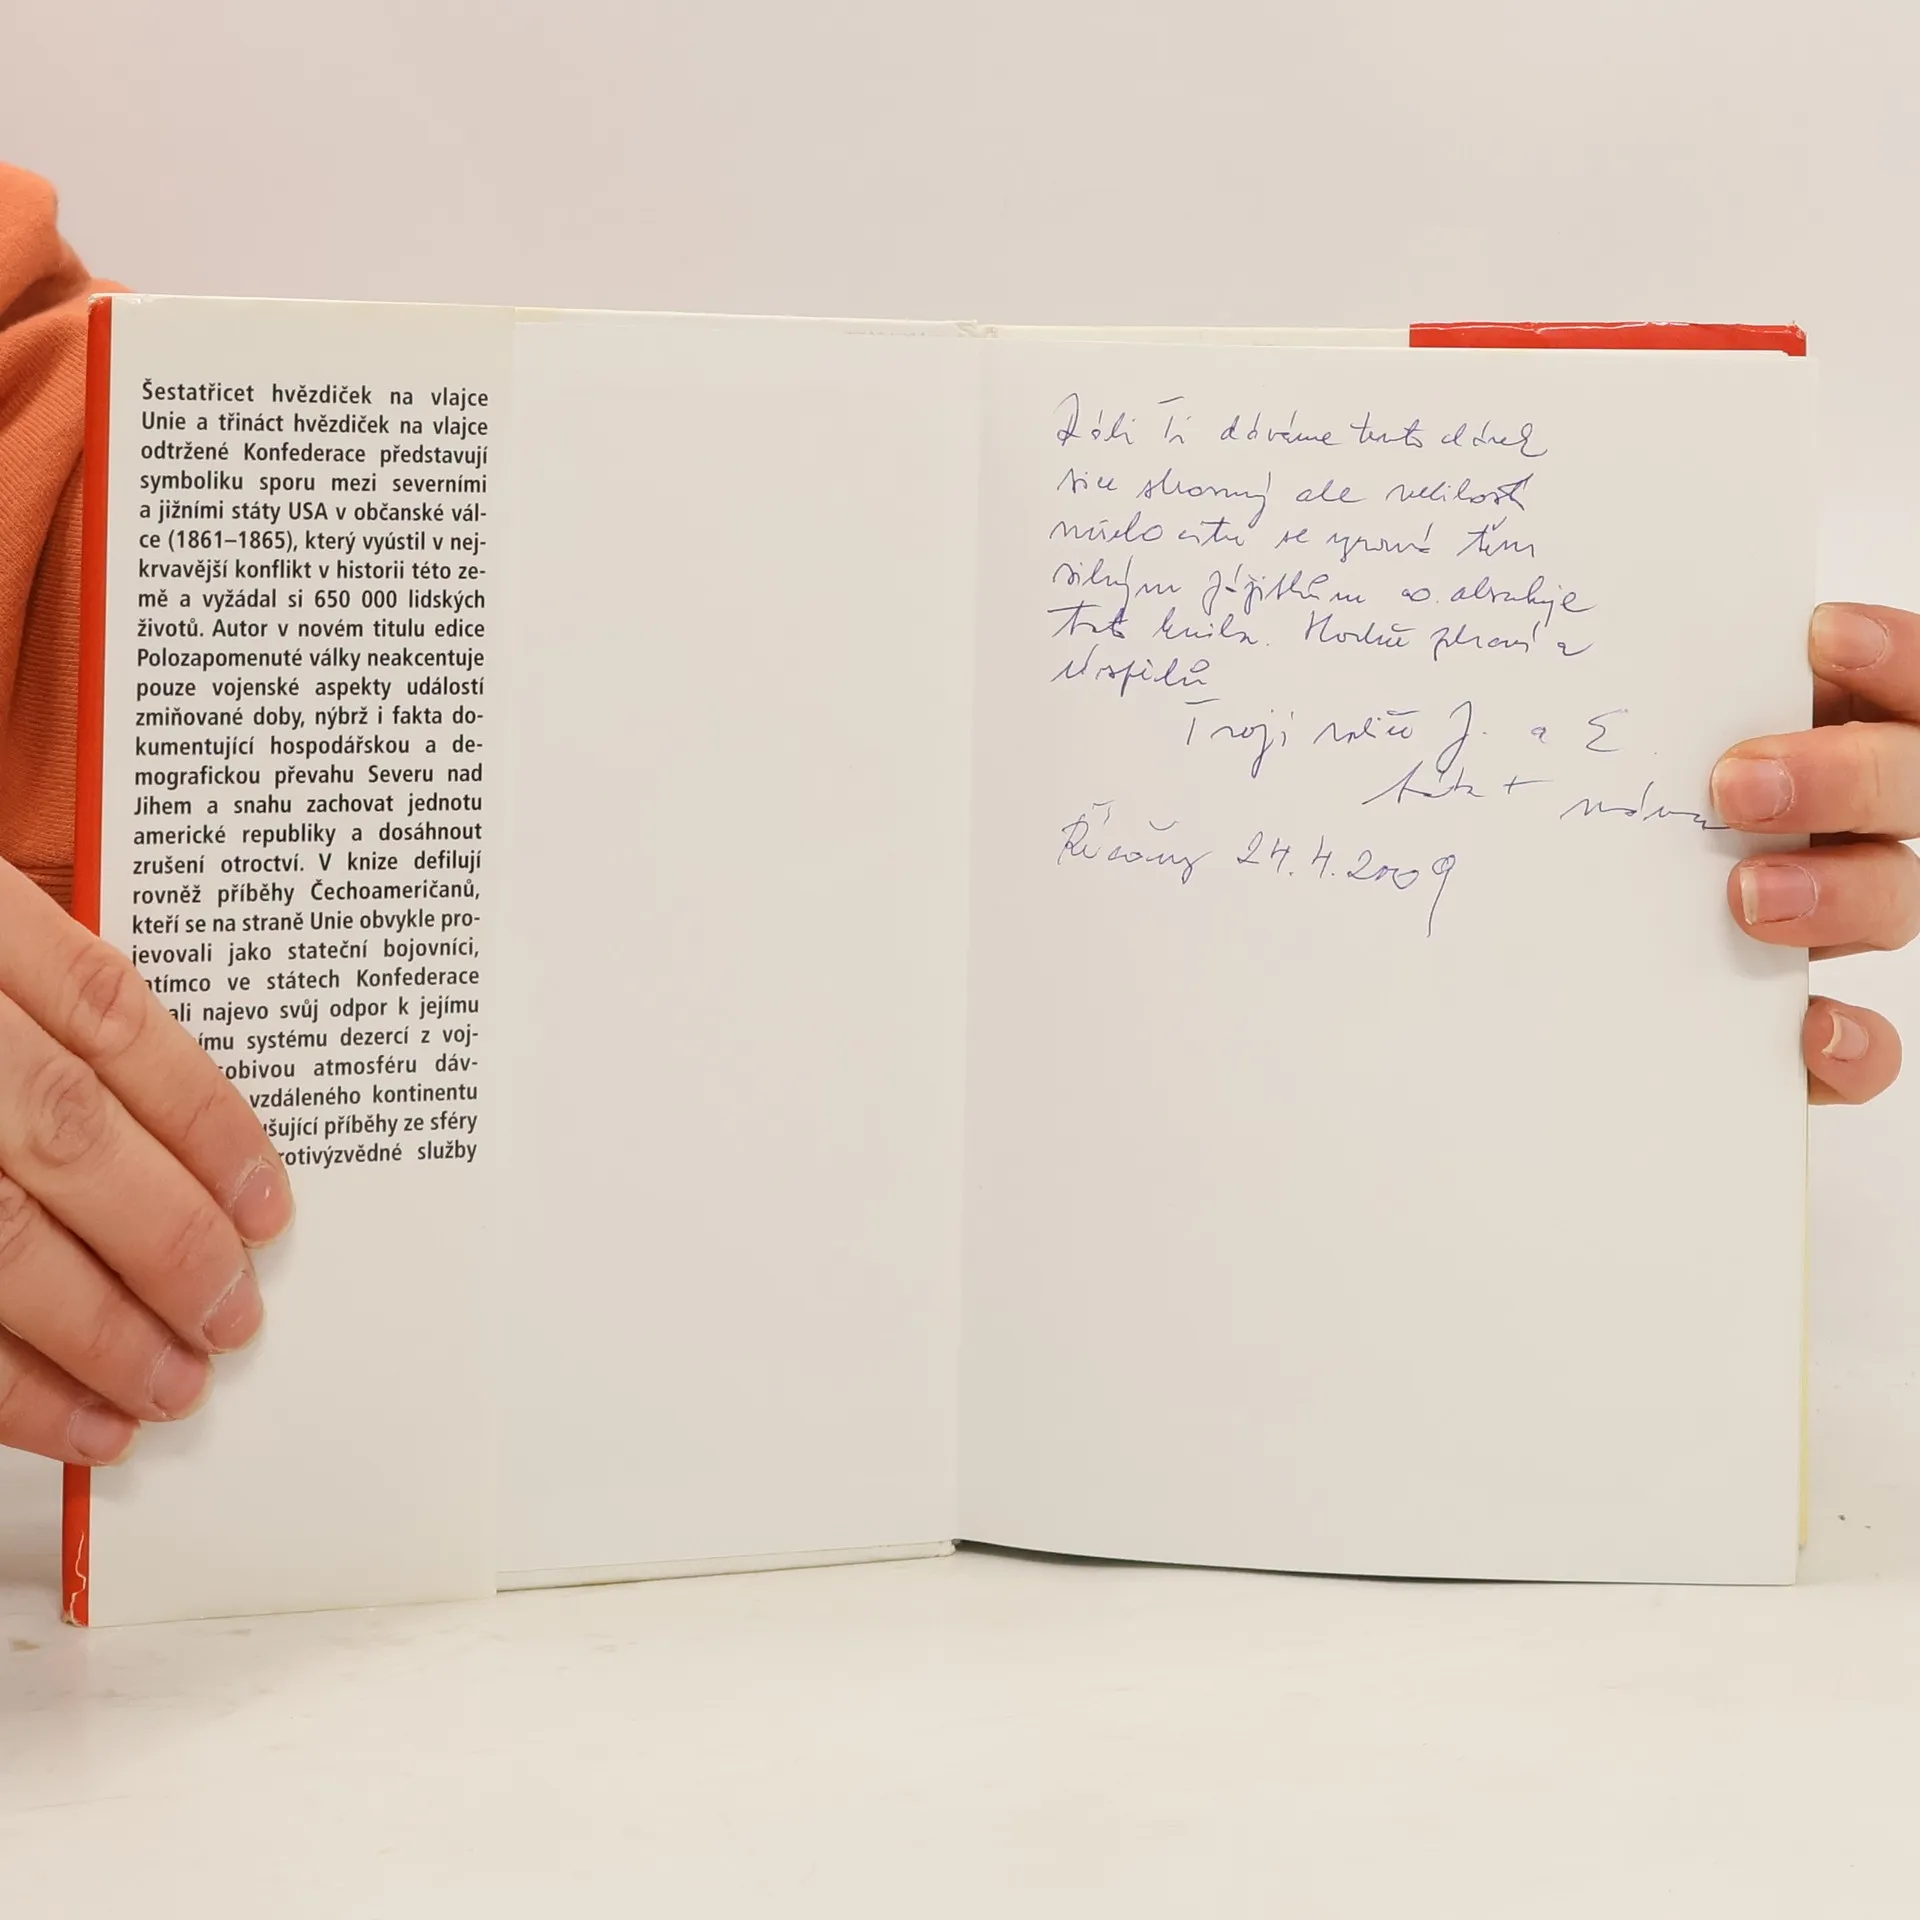 Šestatřicet hvězdiček na vlajce
Unie a třináct hvězdiček na vlajce
odtržené Konfederace představují
symboliku sporu mezi severními
a jižními státy USA v občanské vál-
ce (1861–1865), který vyústil v nej-
krvavější konflikt v historii této ze-
mě a vyžádal si 650 000 lidských
životů. Autor v novém titulu edice
Polozapomenuté války neakcentuje
pouze vojenské aspekty událostí
zmiňované doby, nýbrž i fakta do-
kumentující hospodářskou a de-
mografickou převahu Severu nad
Jihem a snahu zachovat jednotu
americké republiky a dosáhnout
zrušení otroctví. V knize defilují
rovněž příběhy Čechoameričanů,
kteří se na straně Unie obvykle pro-
jevovali jako stateční bojovníci,
atímco ve státech Konfederace
ali najevo svůj odpor k jejímu
ímu systému dezercí z voj-
obivou atmosféru dáv-
vzdáleného kontinentu
ušující příběhy ze sféry
rotivýzvědné služby
Rádi Ti dáváme tento dárek
sice skromný ale velikost
citu se vyrovná těm
silným zážitkům co obsahuje
tato kniha. Hodně zdraví a
úspěchů
Tvoji rodiče J. a E.
táta + máma
Říčany 24.4.2009